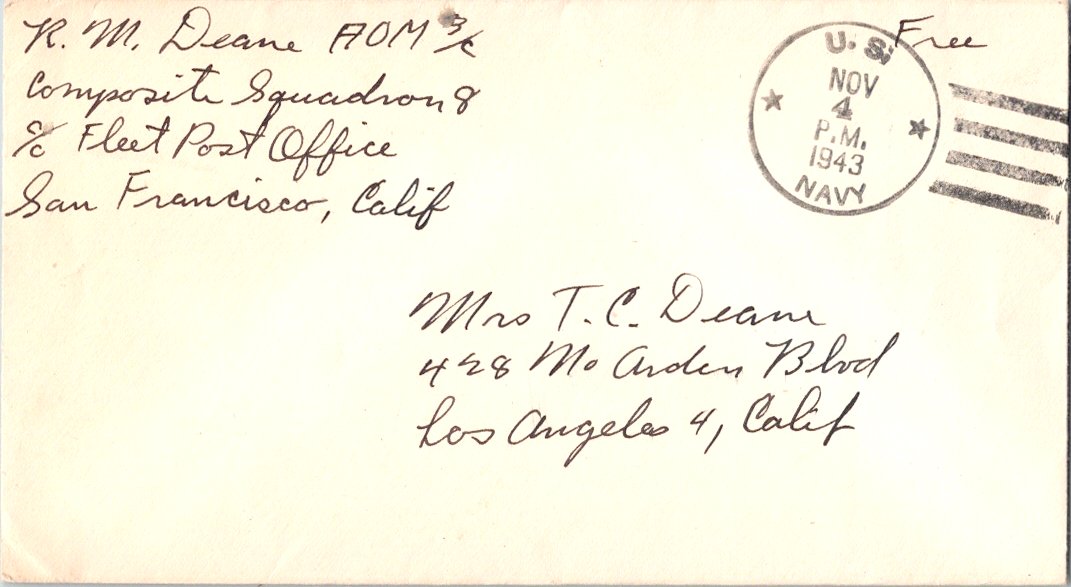 R. M. Deane AOM 3/c
Composite Squadron 8
c/o Fleet Post Office
San Francisco, Calif
Free
U. S.
NOV
4
P.M.
1943
NAVY
Mrs T. C. Deane
428 No Arden Blvd
Los Angeles 4, Calif